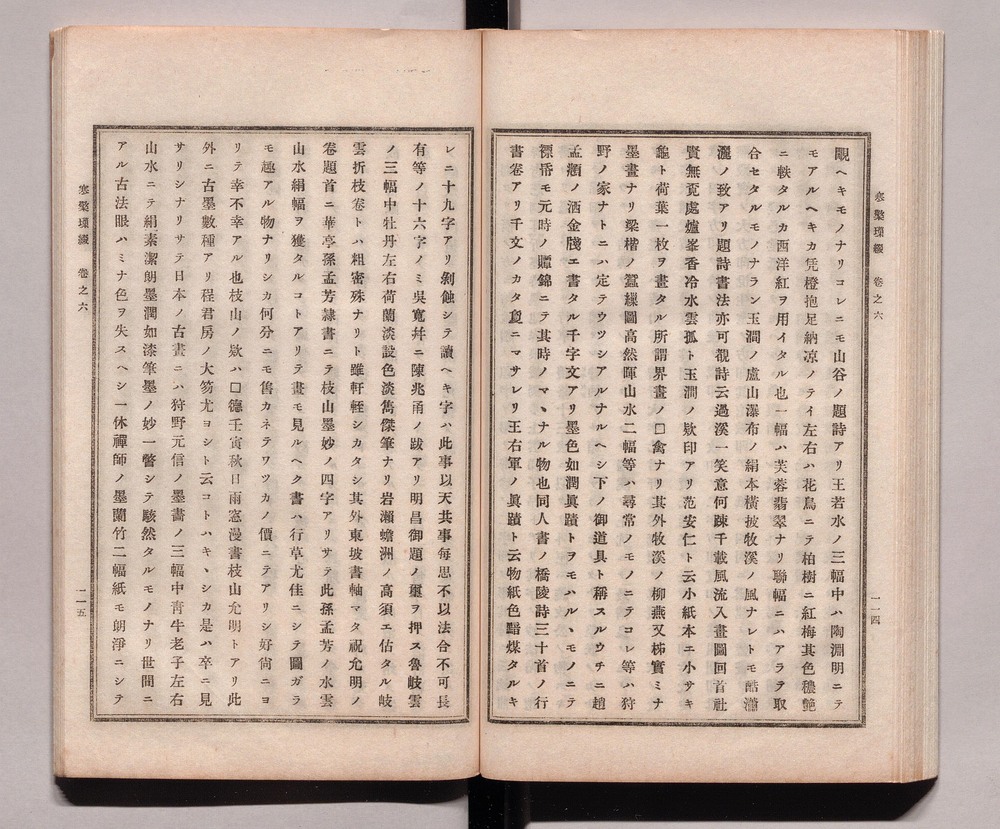 寒檠璅綴　卷之六
一一四
覩ヘキモノナリコレニモ山谷ノ題詩アリ王若水ノ三幅中ハ陶淵明ニテ
モアルヘキカ凭橙抱足納凉ノテイ左右ハ花鳥ニテ柏樹ニ紅梅其色穠艶
ニ軼タルカ西洋紅ヲ用イタル也一幅ハ芙蓉翡翠ナリ聯幅ニハアラテ取
合セタルモノナラン玉澗ノ盧山瀑布ノ絹本橫披牧溪ノ風ナレトモ酷瀟
灑ノ致アリ題詩書法亦可觀詩云過溪一笑意何疎千載風流入畫圖回首社
賢無覓處爐峯香冷水雲孤ト玉澗ノ欵印アリ范安仁ト云小紙本ニ小サキ
龜ト荷葉一枚ヲ畫タル所謂界畫ノ口禽ナリ其外牧溪ノ柳燕又柹實ミナ
墨畫ナリ梁楷ノ蠶繅圖高然暉山水二幅等ハ尋常ノモノニラコレ等ハ狩
野ノ家ナトニハ定テウツシアルナルヘシ下ノ御道具ト稱スルウチニ趙
孟頫ノ洒金牋エ書タル千字文アリ墨色如潤眞蹟トヲモハルヽモノニテ
褾帋モ元時ノ贉錦ニテ其時ノマヽナル物也同人書ノ橋陵詩三十首ノ行
書卷アリ千文ノカタ戛ニマサレリ王右軍ノ眞蹟ト云物紙色黯煤タルキ
レニ十九字アリ剝蝕シテ讀ヘキ字ハ此事以天其事每思不以法合不可長
有等ノ十六字ノミ吳寬幷ニ陳兆甬ノ跋アリ明昌御題ノ璽ヲ押ス魯岐雲
ノ三幅中牡丹左右荷蘭淡設色淡雋傑筆ナリ岩瀨蟾洲ノ高須エ估タル岐
雲折枝卷トハ粗密殊ナリト雖軒輊シカタシ其外東坡書軸マタ祝允明ノ
卷題首ニ華亭孫孟芳隷書ニテ枝山墨妙ノ四字アリサテ此孫孟芳ノ水雲
山水絹幅ヲ獲タルコトアリテ畫モ見ルヘク書ハ行草尤佳ニシテ圖ガラ
モ趣アル物ナリシカ何分ニモ舊カネテワツカノ價ニテアリシ好尙ニヨ
リテ幸不幸アル也枝山ノ欵ハ口德壬寅秋日雨窓漫書枝山允明トアリ此
外ニ古墨數種アリ程君房ノ大笏尤ヨシト云コトハキヽシカ是ハ卒ニ見
サリシナリサテ日本ノ古畫ニハ狩野元信ノ墨畵ノ三幅中靑牛老子左右
山水ニテ絹素潔朗墨潤如漆筆墨ノ妙一瞥シテ駭然タルモノナリ世間ニ
アル古法眼ハミナ色ヲ失スヘシ一休禪師ノ墨蘭竹二幅紙モ朗淨ニシテ
寒檠璅綴　卷之六
一一五